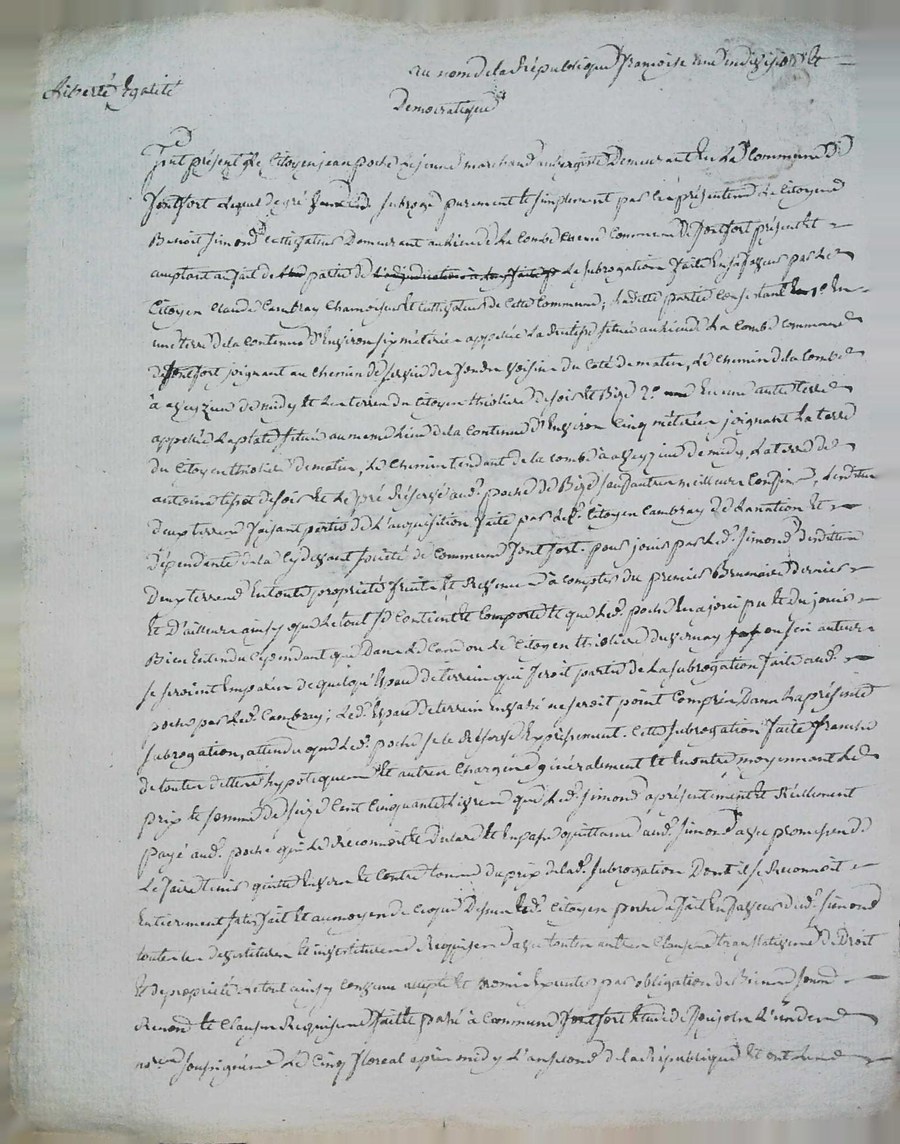 Liberté Egalité
au nom de la République françoise une indivisible et
Democratique
fut présent le Citoyen jean poche le jeune marchand aubergiste Demeurant en la Commune de
fontfort lequel de gré subroge purement et simplement par les présentes le Citoyen
Benoit Simond cultivateur Demeurant au lieu de la Combe Commune de fontfort présent et
acceptant au fait de partie de la subrogation faite en sa faveur par le
Citoyen Claude Cambray Chamoiseur et cultivateur de cette Commune, la ditte partie consistant 1o En
une terre de la contenue d'Environ six métérées appellée située au lieu de la Combe commune
de fontfort joignant au chemin de voisin du coté de matin, le chemin de la Combe
à de midy et les terres du Citoyen thiolier de soir et Bize 2o En une autre terre
appellée la platte située au meme lieu de la contenue d'Environ Cinq métérées joignant la terre
du Citoyen thiolier de matin, le Chemin tendant de la combe à de midy, la terre de
antoine de soir et le pré Réservé aud. poche de Bize sauf autres meilleurs Confins, lesdittes
deux terres faisant partie de l'acquisition faite par led. Citoyen Cambray de la nation et
Dépendante de la cydevant société de Commune fontfort. pour jouir par led. Simond Desdittes
Deux terres En toute propriété fruits et Revenus à compter du premier Brumaire Dernier
Et D'ailleurs ainsy que le tout se Contient et Comporte et que led. poche En a joui pu et du jouir
Bien Entendu Cependant que Dans le Cas ou le Citoyen thiolier Duvernay ou ses auteurs
se seroient Emparés de quelqu'Espace de terrein qui feroit partie de la subrogation faite aud.
poche par led. Cambray; led. Espace de terrein ne seroit point Compris Dans la présente
subrogation, attendu que led. poche se le Réserve Expressement. Cette subrogation faite franche
de toutes dettes hypoteques Et autres Charges généralement et En outre moyennant le
prix et somme de seize Cent Cinquante livres que led. Simond a présentement et Réellement
payé aud. poche qui le Reconnoit et Declare et En passe quittance aud. Simond avec promesse de
le faire tenir quitte Envers et Contre tous du prix de lad. subrogation Dont il se Reconnoit
Entierement satisfait Et au moyen de ce que Dessus led. Citoyen poche a fait En faveur dud. Simond
toutes les devetitures et investitures Requises avec toutes autres Clauses translatives de Droit
Et de propriété le tout ainsy Convenu accepté et promis Executer par obligation de Biens soum
Renon et Clauses Requises fait et passé à Commune fontfort Etude de L'un des
nores soussignés le Cinq floreal après midy L'an second de la République et ont les